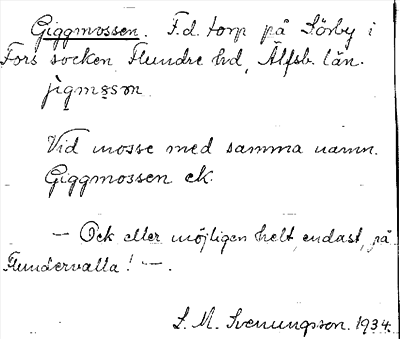 Giggmossen. F.d. torp på Sörby i
Fors socken Flundre hd, Älfsb. län.
jìgmåsøn
Vid mosse med samma namn.
Giggmossen ek.
— Ock eller möjligen helt, endast, på
Flundervalla! —.
S. M. Svenungsson. 1934.